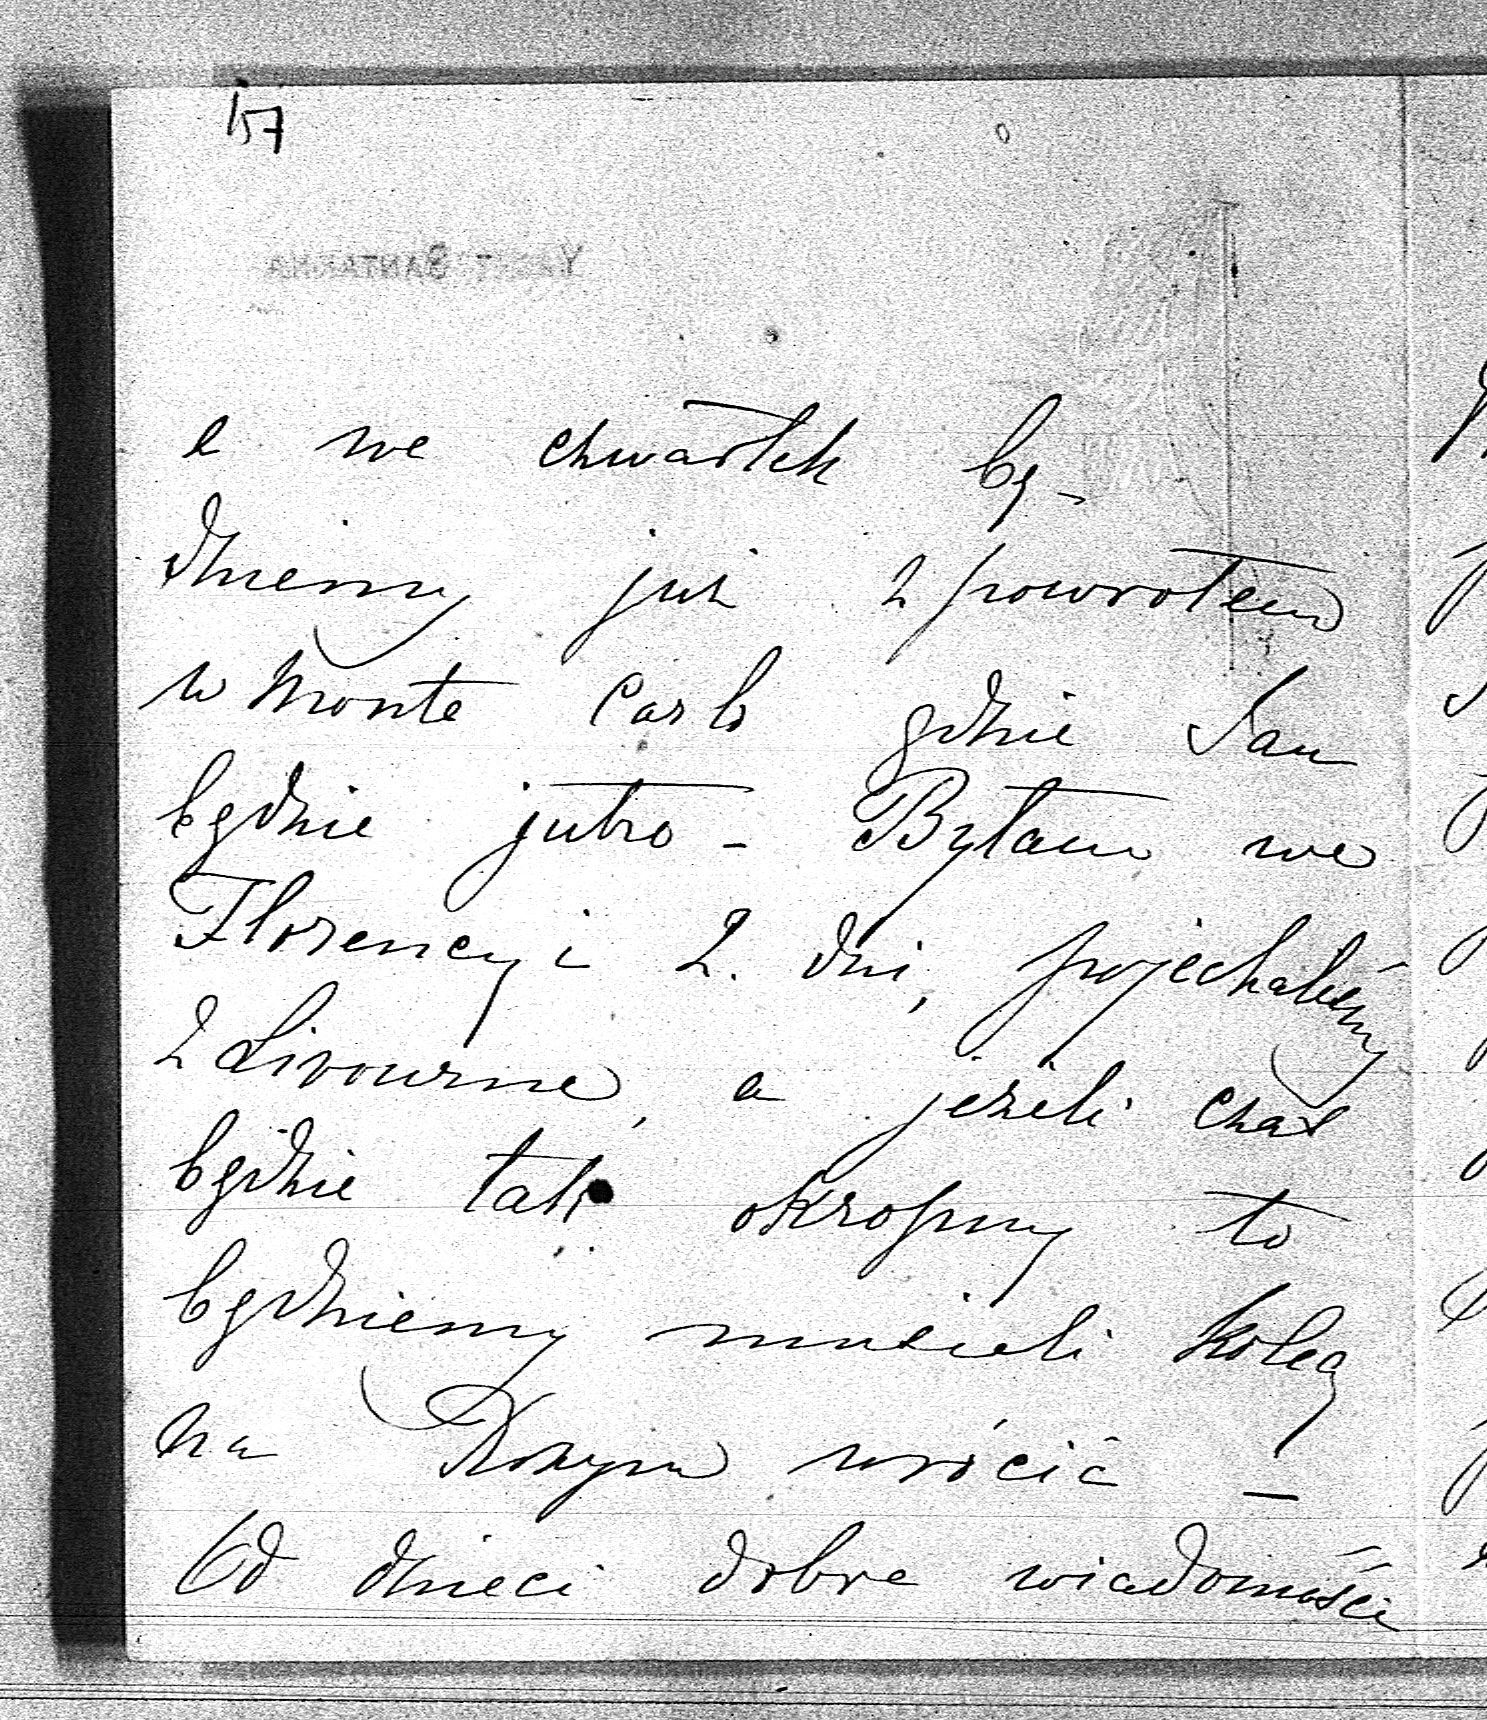 157
a we czwartek bę-
dziemy już z powrotem
w Monte Carlo gdzie Jan
będzie jutro – Byłam we
Florencyi 2. dni, pojechaliśmy
z Livourne, a jeżeli czas
będzie tak okropny to
będziemy musieli koleją
na Rzym wrócić –
Od dzieci dobre wiadomości